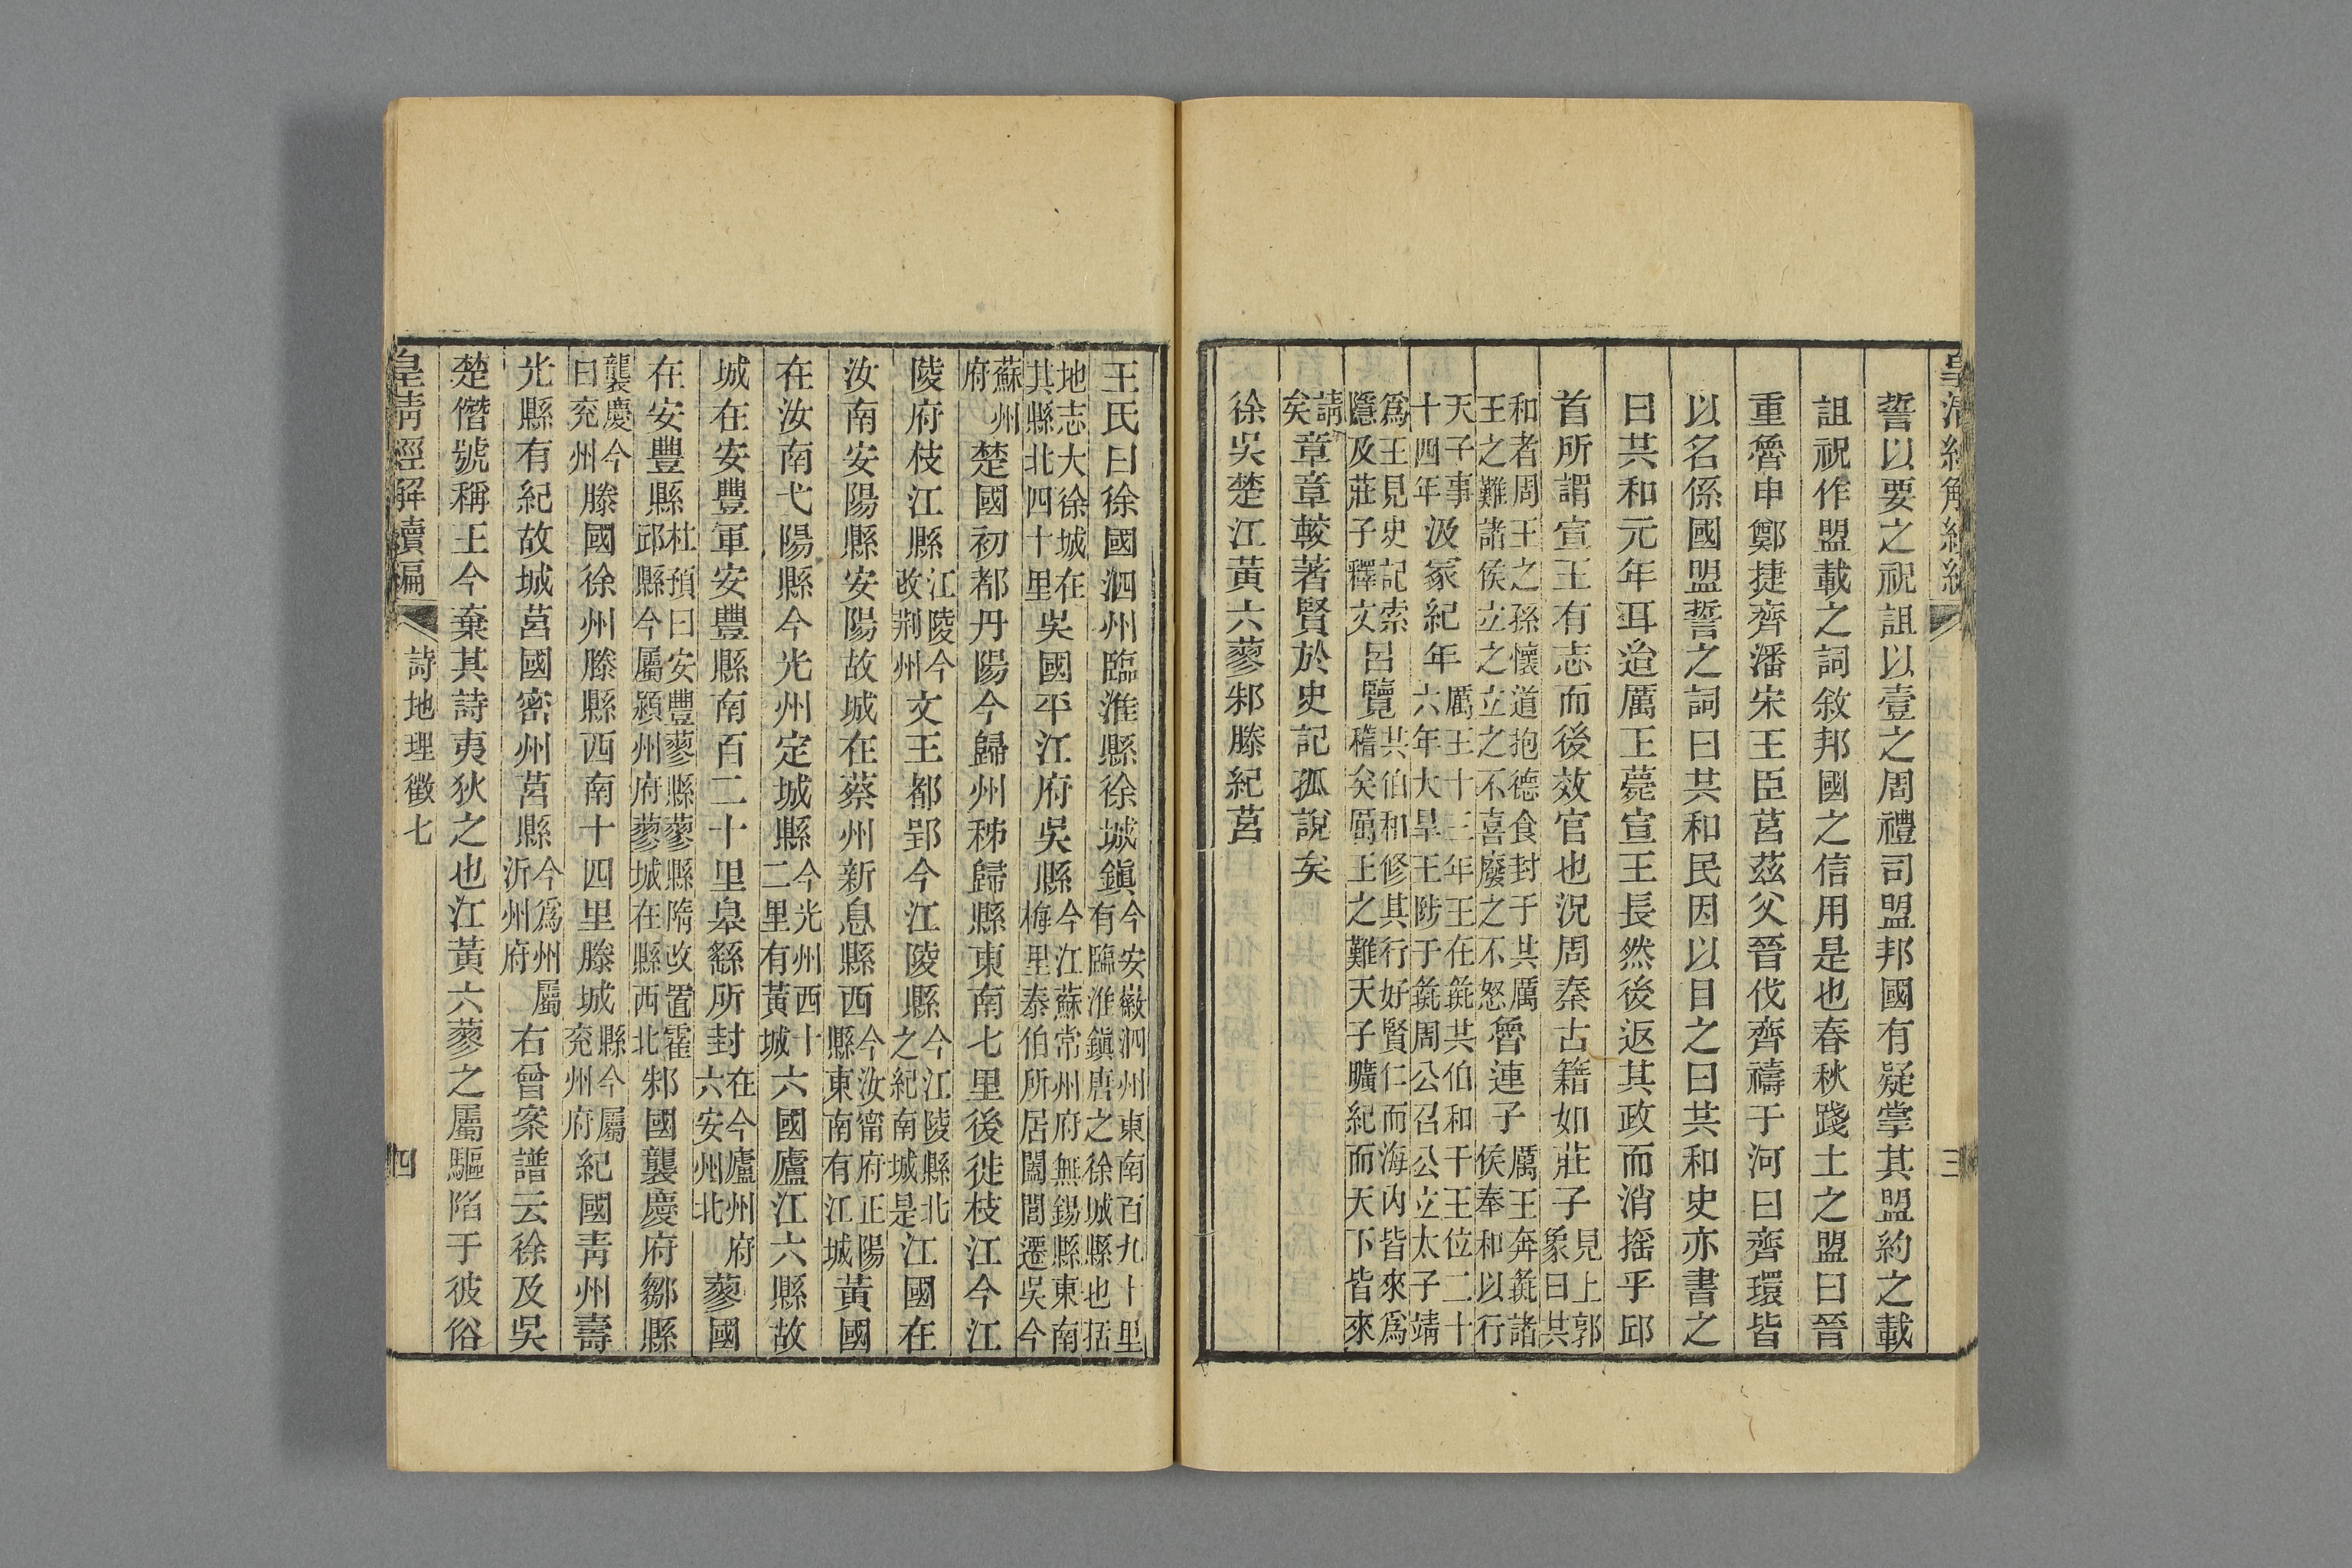 誓以要之祝詛以壹之周禮司盟邦國有疑掌其盟約之載
詛祝作盟載之詞敘邦國之信用是也春秋踐土之盟曰晉
重魯申鄭捷齊潘宋王臣莒茲父晉伐齊禱于河曰齊環皆
以名係國盟誓之詞曰共和民因以目之曰共和史亦書之
曰共和元年耳迨厲王薨宣王長然後返其政而消搖乎邱
首所謂宣王有志而後效官也況周秦古籍如莊子見上郭象曰共
和者周王之孫懷道抱德食封于共厲王之難諸侯立之立之不喜廢之不怒魯連子厲王奔彘諸侯奉和以行
天子事十四年汲冢紀年厲王十三年王在彘共伯和干王位二十六年大旱王陟于彘周公召公立太子靖
爲王見史記索隱及莊子釋文呂覽共伯和修其行好賢仁而海內皆來爲稽矣厲王之難天子曠紀而天下皆來
請矣章章較著賢於史記孤說矣
徐吳楚江黃六蓼邾滕紀莒
三
王氏曰徐國泗州臨淮縣徐城鎮今安徽泗州東南百九十里有臨淮鎮唐之徐城縣也括
地志大徐城在其縣北四十里吳國平江府吳縣今江蘇常州府無錫縣東南梅里泰伯所居闔閭遷吳今
蘇州府楚國初都丹陽今歸州秭歸縣東南七里後徙枝江今江
陵府枝江縣江陵今改荆州文王都郢今江陵縣今江陵縣北之紀南城是江國在
汝南安陽縣安陽故城在蔡州新息縣西今汝甯府正陽縣東南有江城黃國
在汝南弋陽縣今光州定城縣今光州西十二里有黃城六國廬江六縣故
城在安豐軍安豐縣南百二十里皋繇所封在今廬州府六安州北蓼國
在安豐縣杜預曰安豐蓼縣蓼縣隋改置霍邱縣今屬潁州府蓼城在縣西北邾國襲慶府鄒縣
襲慶今曰兖州滕國徐州滕縣西南十四里滕城縣今屬兖州府紀國青州壽
光縣有紀故城莒國密州莒縣今爲州屬沂州府右曾案譜云徐及吳
楚僭號稱王今棄其詩夷狄之也江黃六蓼之屬驅陷于彼俗
皇清經解續編 詩地理徵七 四